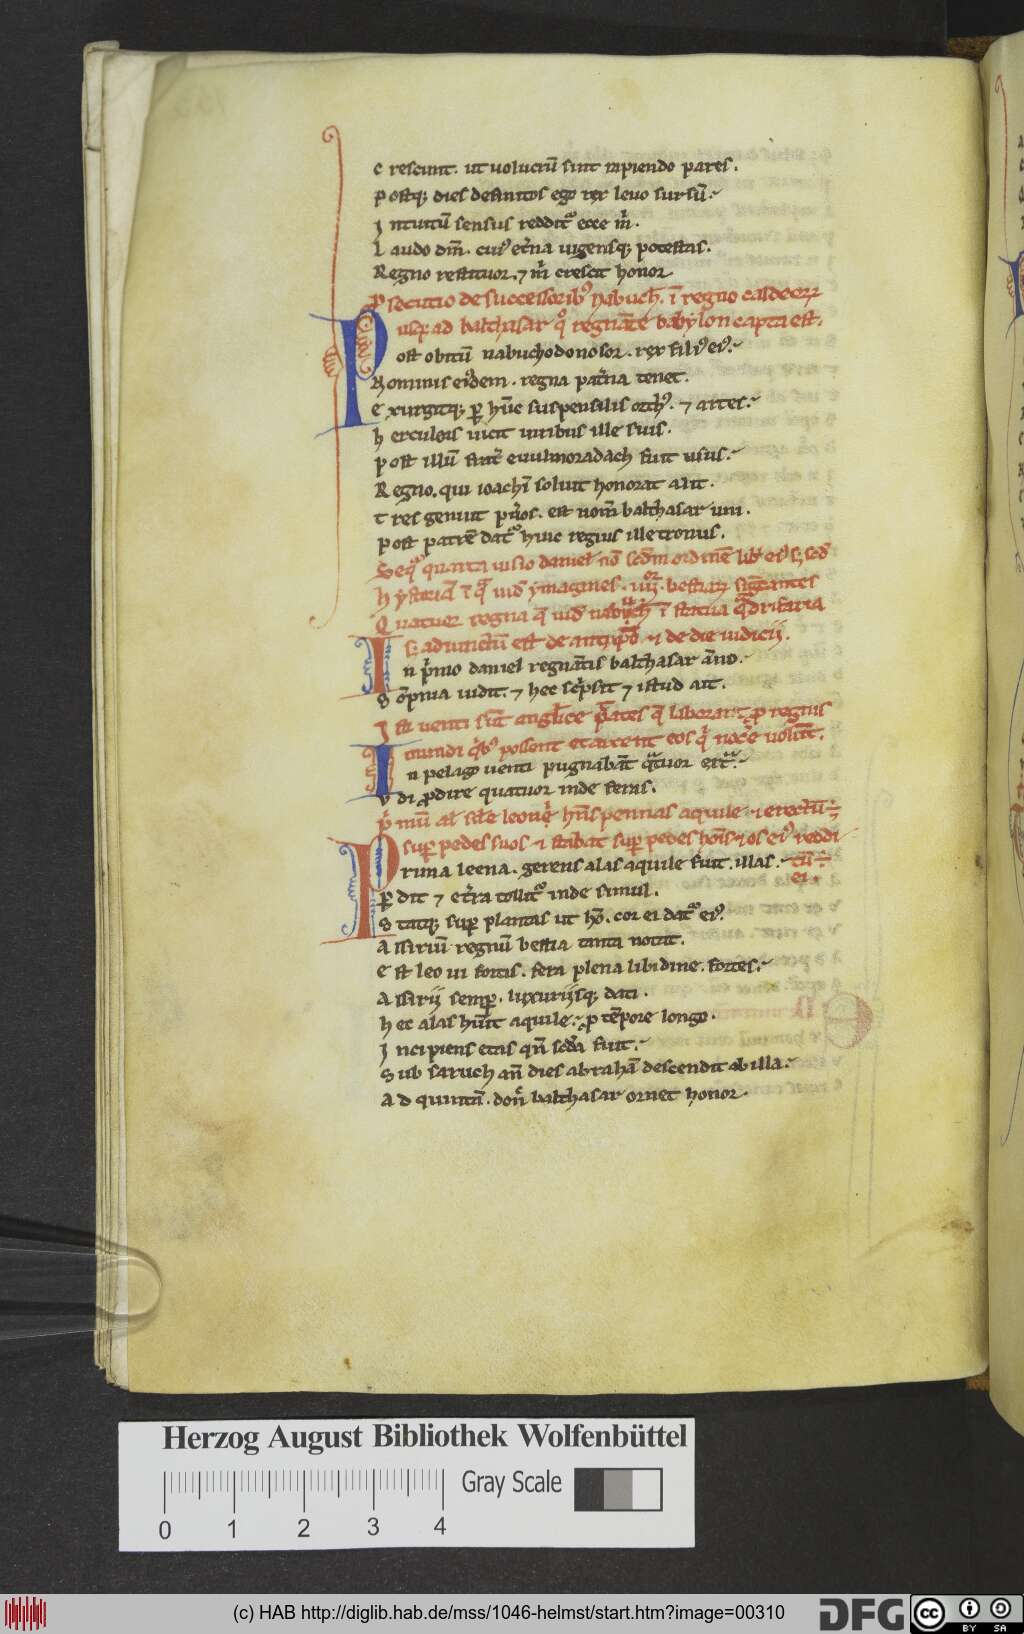 c rescunt. ut uolucrū sint rapiendo pares.
p ostq; dies definitos ego rex leuo sursū.
I ntuitū sensus redditͬ ecce m̄.
L audo dm̄. cuiꝰ et̄na uigensq; potestas.
R egno restituor. ⁊ m̄ crescit honor
P secutio de successoribꝰ Nabuch̄. ī regno caldeoꝝ
usꝙ ad balthasar q̊ regnāte babylon capta est.
P ost obitū nabuchodonosor. rex filiꝰ eiꝰ.
N ominis eiꝰdem. regna pat̄na tenet.
E xurgitq; ꝑ hūc suspensilis orthꝰ. ⁊ artes.
h erculeis uicit uiribus ille suis.
p ost illū frat̄ euulmoradach fuit usus.
R egno. qui ioachī soluit honorat alit.
t res genuit pūos. est nom̄ balthasar uni.
p ost patrē datͬ huic regius ille tronus.
Seqͬ quarta uisio daniel nō scd̄m ordinē libri eiꝰ s; scd̄
h ystoriā ī q̄ uid̄ ymagines. iiiior. bestiaꝝ sig̅antes
Q uatuor regna q̄ uid̄ nabuch̄ ī statua q̄drifaria
s; adiunctū est de antixp̄o ⁊ de die iudicii.
I n p̄mo daniel regnātis balthasar anno.
S ōpnia uidit. ⁊ hec sc̄psit ⁊ istud ait.
I sti uenti sūt anglice p̄ātes q̄ liborant ꝓ regnis
mundi q̄bꝰ possent et arcent eos q̄ noc̄e uolūt.
I n pelago uenti pugnabāt q̄tuor
V di ꝓdire quatuor inde feras.
p̄ mū al sīle leone hn̄s pennas aquile ⁊ erectū
suꝑ pedes suos ⁊ stabat suꝑ pedes hōīs ⁊ os eiꝰ reddi
P rima leena. gerens alas aquile fuit. illas. tū
ei.
ꝑ dit ⁊ et̄ra tollitͬ inde simul.
S tatq; suꝑ plantas ut hō. cor ei datͬ eiꝰ.
A ssiriū regnū bestia tanta notat.
E st leo ui fortis. fera plena libidine. fortes.
A ssirij semꝑ. luxurijsq; dati.
h ec alas hūit aquile. ꝓ tēpore longo.
I ncipiens etas qn̄ scd̄a fuit.
S ub saruch an̄ dies abrahā descendit ab illa.
A d quintū. don̄ balthasar ornet honor.
Herzog August Bibliothek Wolfenbüttel
Gray Scale
0 1 2 3 4
(c) HAB http://diglib.hab.de/mss/1046-helmst/start.htm?image=00310
DFG
cc BY SA